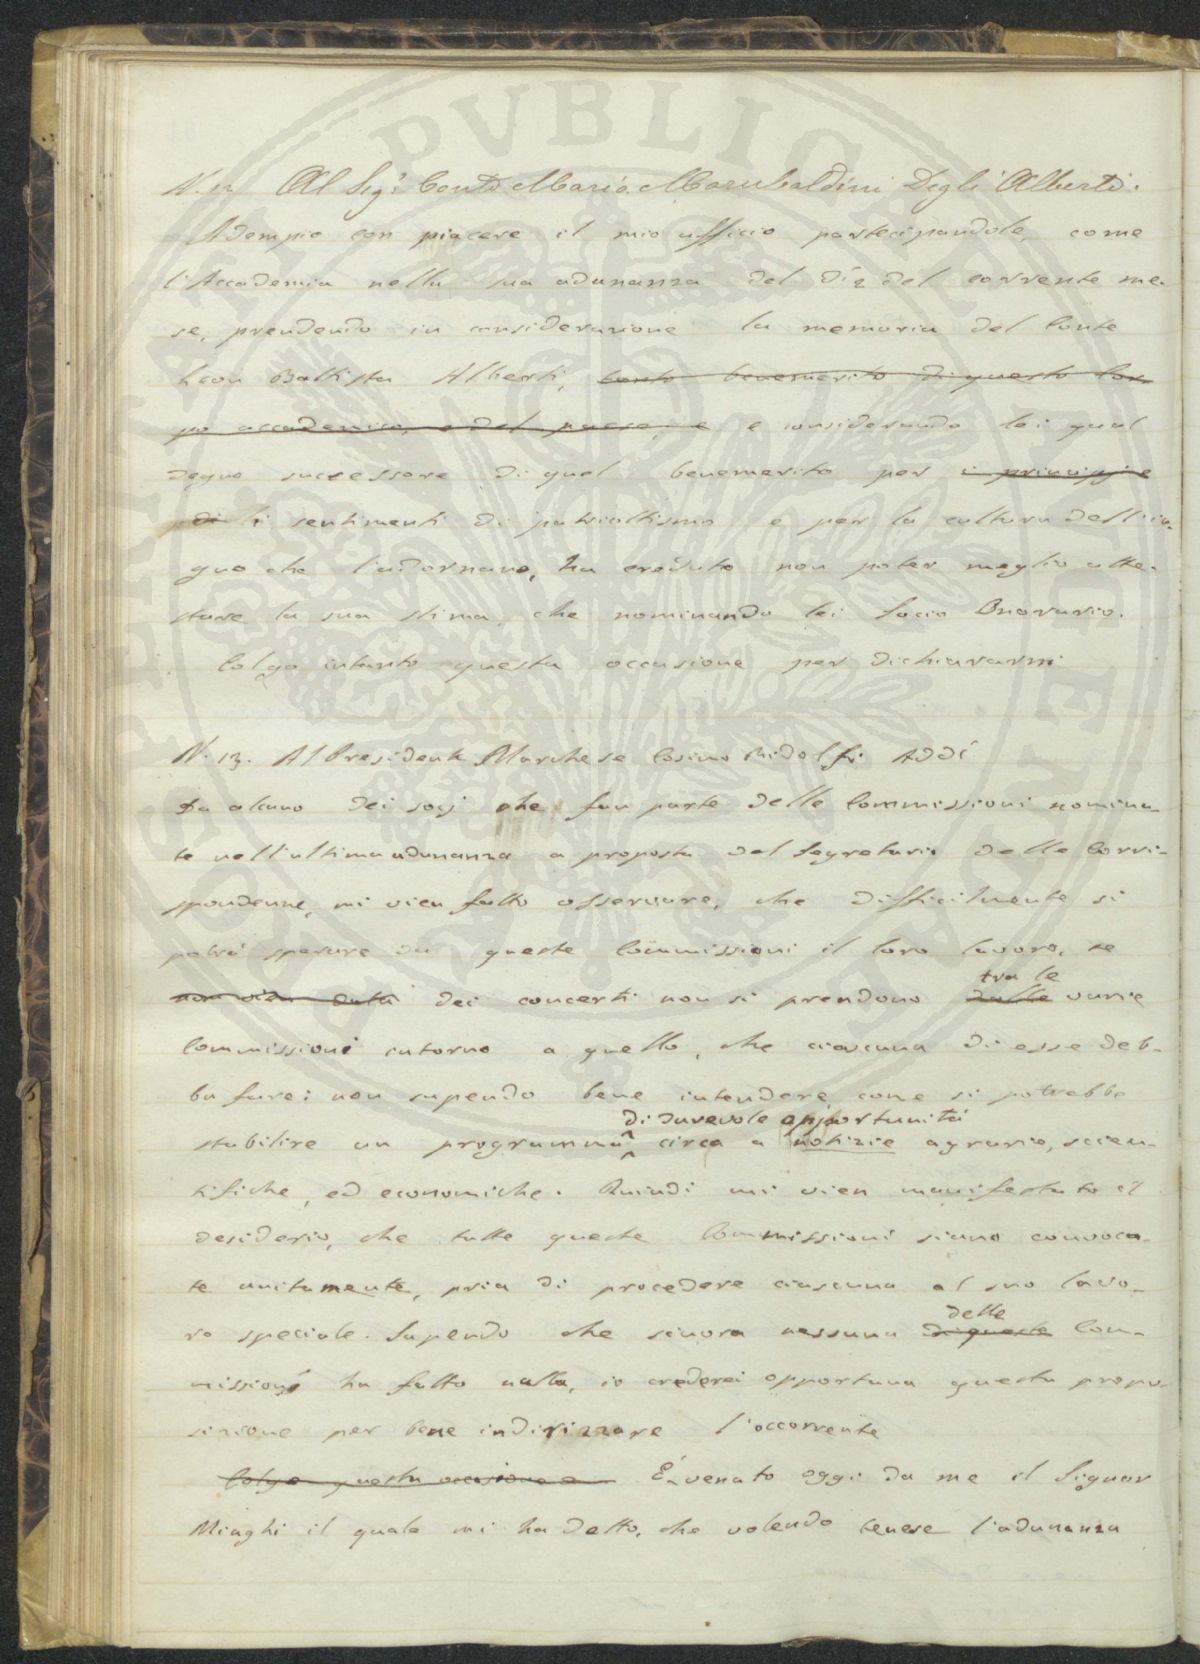 N. 12 Al Sig.r Conte Mario Morubaldini Degli Alberti.
Adempio con piacere il mio ufficio partecipandole, come
l'Accademia nella sua adunanza del dì 2 del corrente me-
se, prendendo in considerazione la memoria del Conte
Leon Battista Alberti, tanto benemerito di questo Cor
po accademico, e del paese, e e considerando lei qual
degno successore di quel benemerito per i principj e
di li sentimenti di patriottismo e per la cultura dell'in-
gno che l'adornano, ha creduto non poter meglio atte-
stare la sua stima, che nominando lei Socio Onorario.
Colgo intanto questa occasione per dichiararmi
N. 13. Al Presidente Marchese Cosimo Ridolfi Addì
Da alcuno dei socj che fan parte delle Commissioni nomina-
te nell'ultima adunanza a proposta del Segretario delle Corri-
spondenze, mi vien fatto osservare, che difficilmente si
potrà sperare da queste Commissioni il loro lavoro, se
non vien dati dei concerti non si prendono dalle tra le varie
Commissioni intorno a quello, che ciascuna di esse deb-
ba fare: non sapendo bene intendere come si potrebbe
di durevole opportunità
stabilire un programma circa a notizie agrarie, scien-
tifiche, ed economiche. Quindi mi vien manifestato il
desiderio, che tutte queste Commissioni siano convoca-
te unitamente, pria di procedere ciascuna al suo lavo-
ro speciale. Sapendo che sinora nessuna di queste delle Com-
missioni ha fatto nulla, io crederei opportuna questa propo-
sizione per bene indirizzare l'occorrente
Colgo questa occasione e È venuto oggi da me il Signor
Minghi il quale mi ha detto, che volendo tenere l'adunanza